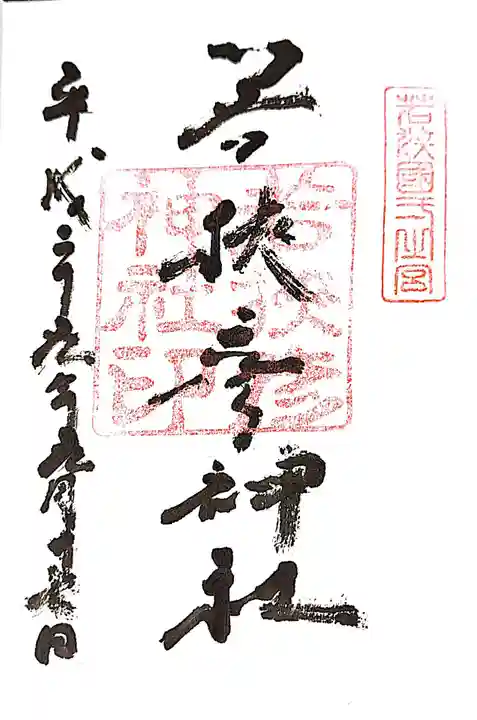 若狹國一之宮
若狭彦神社
若狭彦
神社印
平成二十九年九月十日